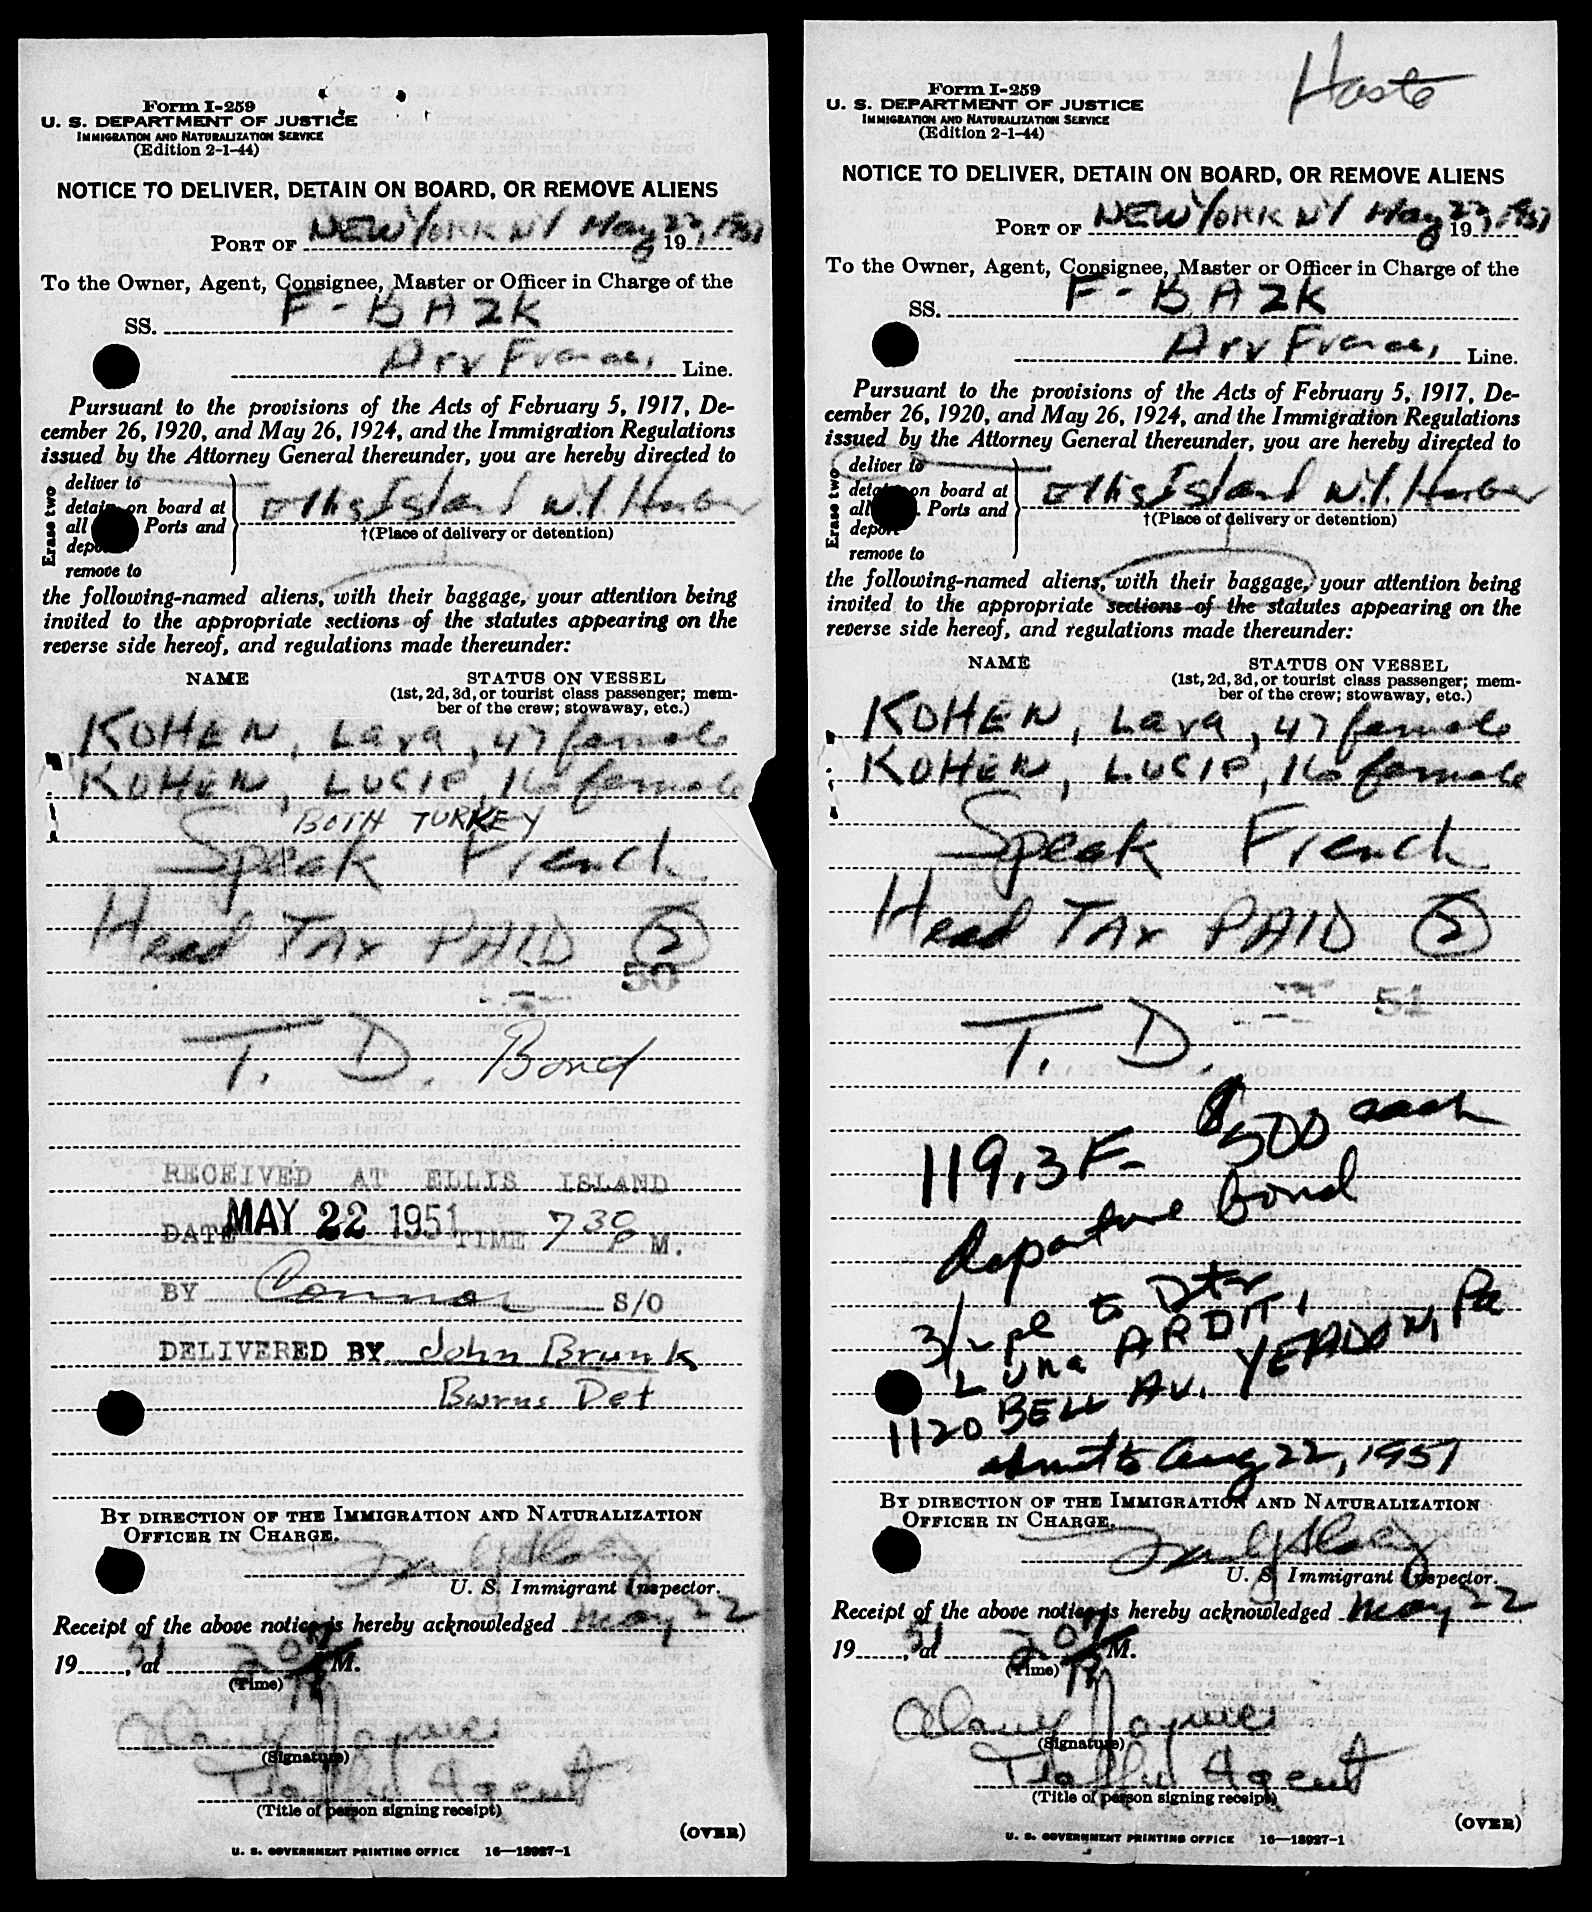 Form I-259
U. S. DEPARTMENT OF JUSTICE
IMMIGRATION AND NATURALIZATION SERVICE
(Edition 2-1-44)
NOTICE TO DELIVER, DETAIN ON BOARD, OR REMOVE ALIENS
PORT OF NEW YORK NY May 22, 1951 19
To the Owner, Agent, Consignee, Master or Officer in Charge of the
SS. F-BAZK
Air France, Line.
Pursuant to the provisions of the Acts of February 5, 1917, De-
cember 26, 1920, and May 26, 1924, and the Immigration Regulations
issued by the Attorney General thereunder, you are hereby directed to
Erase two
deliver to
detain on board at
all Ports and
deport
remove to
Ellis Island N.Y. Harbor
†(Place of delivery or detention)
the following-named aliens, with their baggage, your attention being
invited to the appropriate sections of the statutes appearing on the
reverse side hereof, and regulations made thereunder:
NAME STATUS ON VESSEL
(1st, 2d, 3d, or tourist class passenger; mem-
ber of the crew; stowaway, etc.)
KOHEN, Lara, 47 female
KOHEN, LUCIE, 16 female
BOTH TURKEY
Speak French
Head Tax PAID 2
50
T. D. Bond
RECEIVED AT ELLIS ISLAND
DATE MAY 22 1951 TIME 7 30 P M.
BY Connor S/O
DELIVERED BY John Brunk
Burns Det
BY DIRECTION OF THE IMMIGRATION AND NATURALIZATION
OFFICER IN CHARGE.
U. S. Immigrant Inspector.
Receipt of the above notice is hereby acknowledged May 22
19 51, at M.
(Time)
(Signature)
Traffic Agent
(Title of person signing receipt)
(OVER)
U. S. GOVERNMENT PRINTING OFFICE 16—18927-1
Haste
Form I-259
U. S. DEPARTMENT OF JUSTICE
IMMIGRATION AND NATURALIZATION SERVICE
(Edition 2-1-44)
NOTICE TO DELIVER, DETAIN ON BOARD, OR REMOVE ALIENS
PORT OF NEW YORK NY May 22, 1951 19
To the Owner, Agent, Consignee, Master or Officer in Charge of the
SS. F-BAZK
Air France, Line.
Pursuant to the provisions of the Acts of February 5, 1917, De-
cember 26, 1920, and May 26, 1924, and the Immigration Regulations
issued by the Attorney General thereunder, you are hereby directed to
Erase two
deliver to
detain on board at
all Ports and
deport
remove to
Ellis Island N.Y. Harbor
†(Place of delivery or detention)
the following-named aliens, with their baggage, your attention being
invited to the appropriate sections of the statutes appearing on the
reverse side hereof, and regulations made thereunder:
NAME STATUS ON VESSEL
(1st, 2d, 3d, or tourist class passenger; mem-
ber of the crew; stowaway, etc.)
KOHEN, Lara, 47 female
KOHEN, LUCIE, 16 female
Speak French
Head Tax PAID 2
51
T. D.
$500 each
119.3F-
departure bond
3/2 pl to Dtr
Luna ARDITI
1120 BELL AV. YEADON, Pa
admit to Aug 22, 1951
BY DIRECTION OF THE IMMIGRATION AND NATURALIZATION
OFFICER IN CHARGE.
U. S. Immigrant Inspector.
Receipt of the above notice is hereby acknowledged May 22
19 51, at M.
(Time)
(Signature)
Traffic Agent
(Title of person signing receipt)
(OVER)
U. S. GOVERNMENT PRINTING OFFICE 16—18927-1